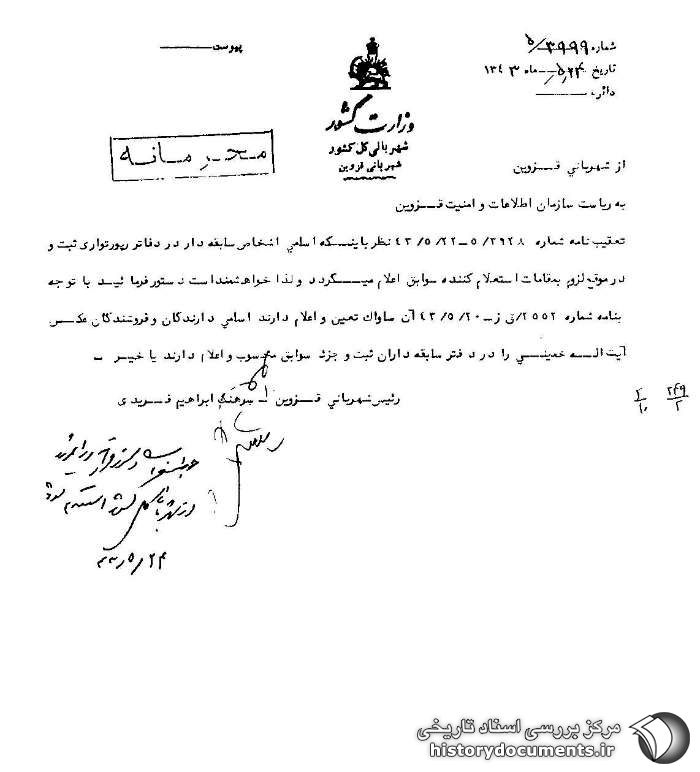 شماره ۵/۳۹۹۹
تاریخ ۵/۲۴ ماه ۱۳۴۳
دائره
پیوست
وزارت کشور
شهربانی کل کشور
شهربانی قزوین
محرمانه
از شهرباني قـزوین
به ریاست سازمان اطلاعات و امنیت قـزوین
تعقیب نامه شماره ۵/۳۹۲۸ ــ ۴۳/۵/۲۲ نظر باینـکه اسامي اشخاص سابقه دار در دفاتر رپورتواری ثبت و
در موقع لزوم بمقامات استعلام کننده سوابق اعلام میـگردد ولذا خواهشمند است دستور فرمائید با توجه
بنامه شماره ۲۵۵۲/ق ز ــ ۴۳/۵/۲۰ آن ساواك تعین و اعلام دارند اسامي دارندکان و فروشندکان عکس
آیت الـه خمینـي را در دفتر سابقه داران ثبت و جزء سوابق محسوب و اعلام دارند یا خیـر ــ
رئیس شهرباني قـزوین ــ سرهنك ابراهیم فریدی
۲۴۹/۲
۲/۱۰
۴۳/۵/۲۴
مرکز بررسی اسناد تاریخی
historydocuments.ir